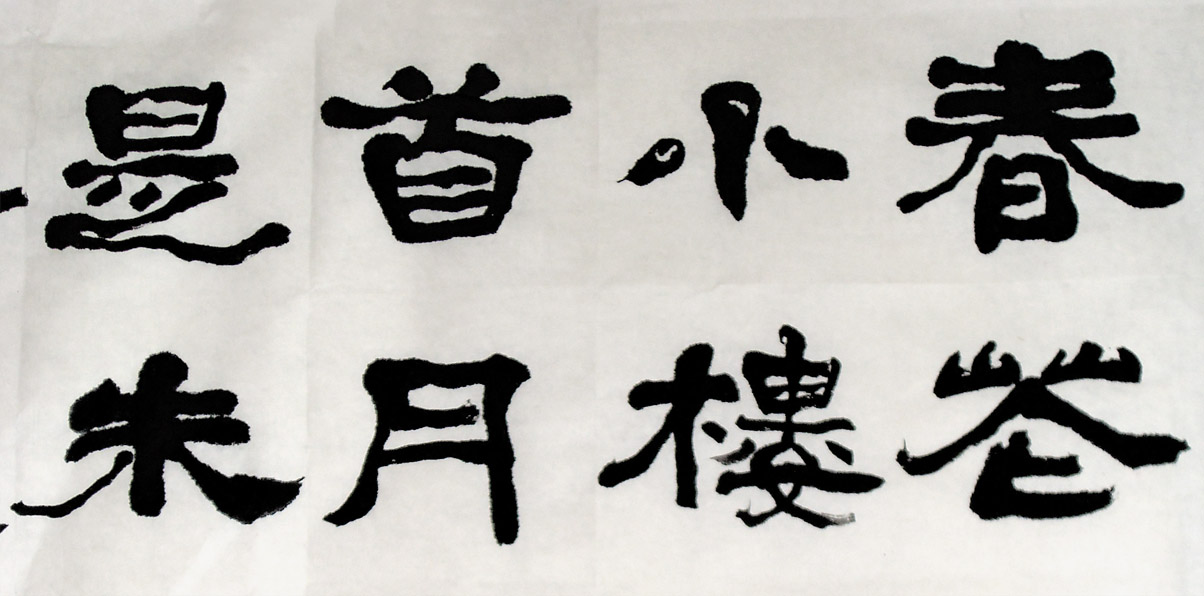 春花
小樓
首月
是朱